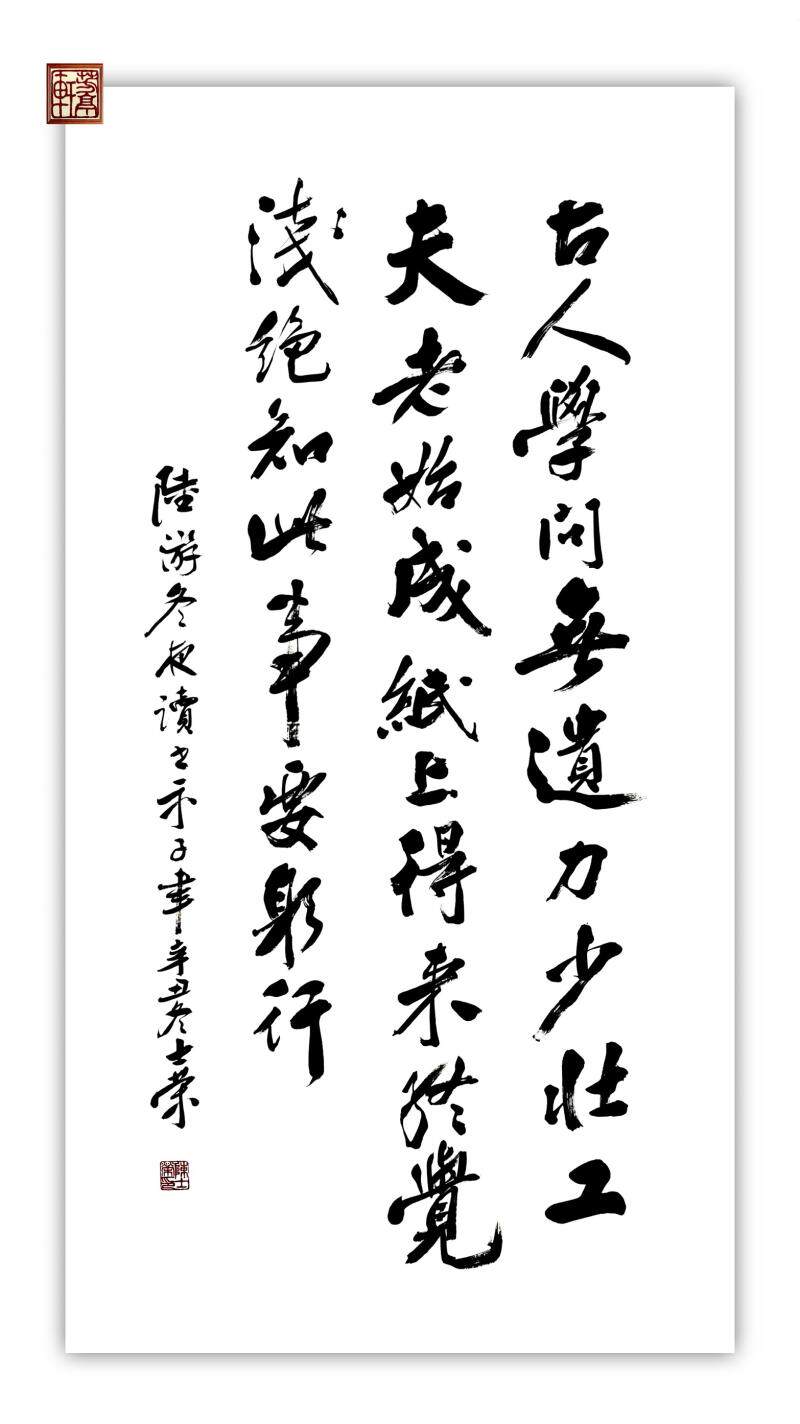 古人學問無遺力少壯工
夫老始成紙上得来終覺
淺絶知此事要躬行
陸游冬夜讀書示子聿辛丑冬士榮
陳士榮印